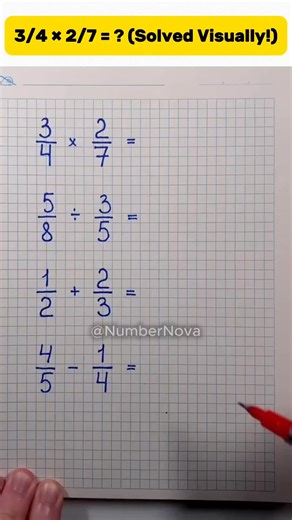 3/4 × 2/7 = ? (Solved Visually!)
3/4 × 2/7 =
5/8 ÷ 3/5 =
1/2 + 2/3 =
@NumberNova
4/5 - 1/4 =